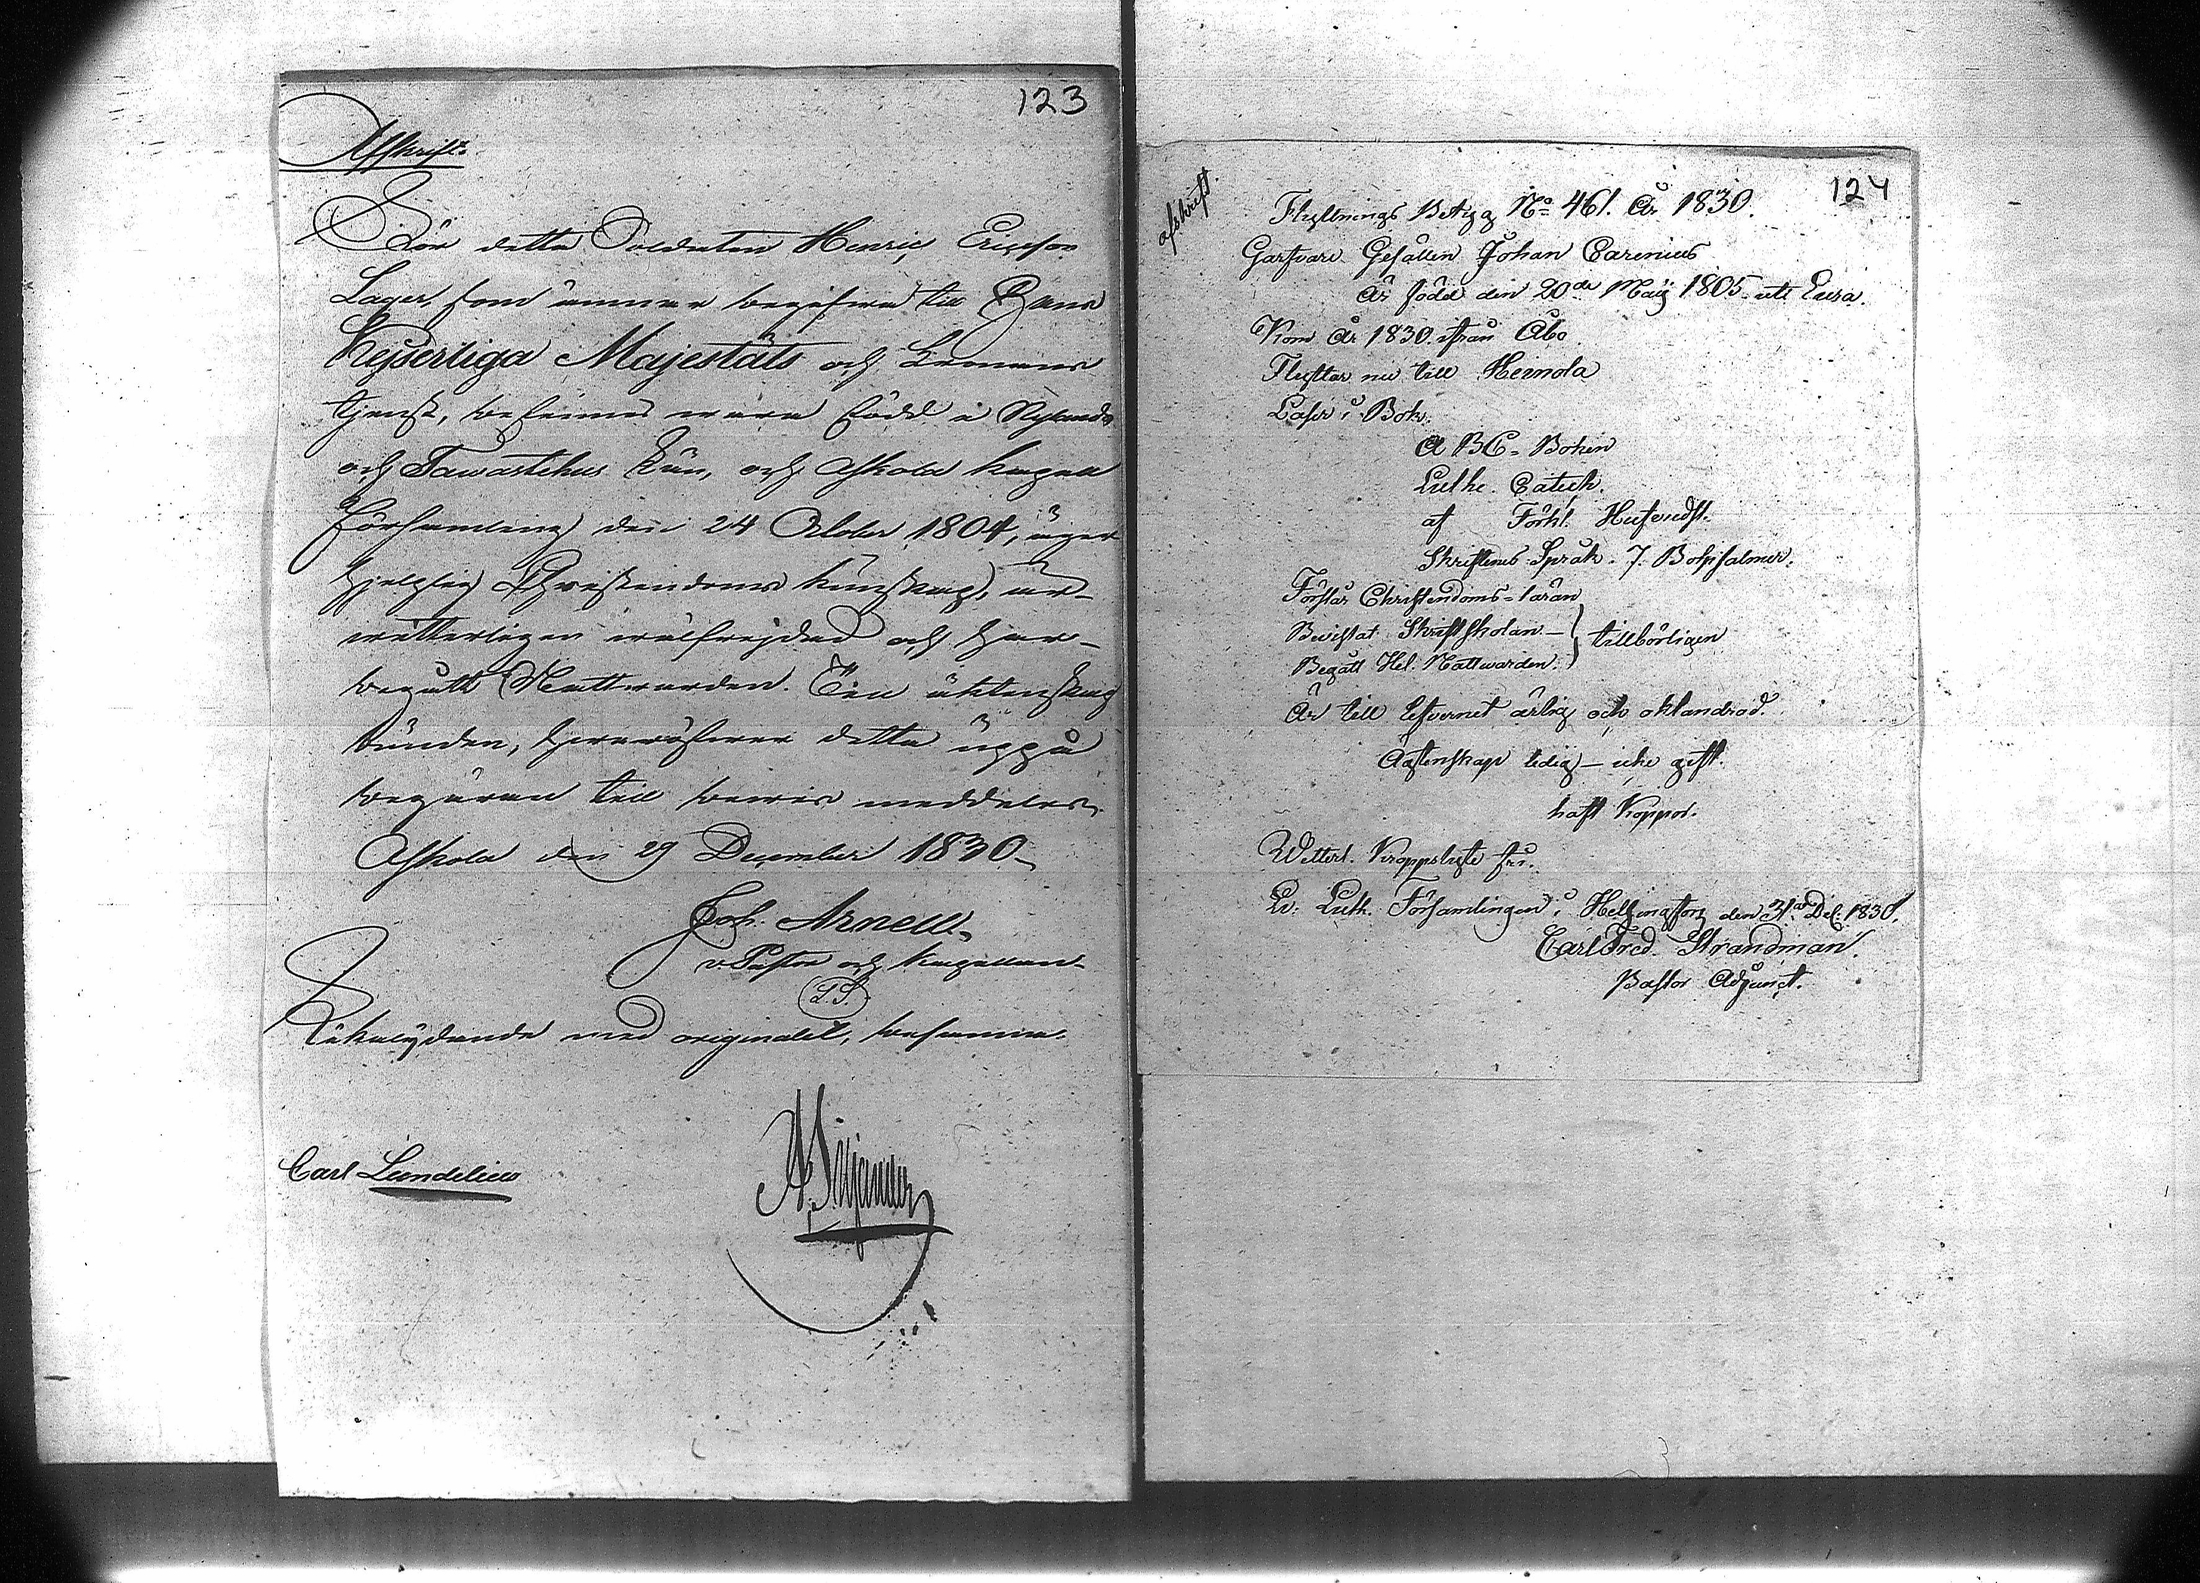 123
Afskrift.
För detta Soldaten Henric Ericsson
Lager, som ämnar begifva sig till Hans
Keijserliga Majestäts och Kronans
tjenst, befinnes vara född i Nylands
och Tawastehus Län, och Askola Capell
Församling den 24 October 1804, äger
hjelplig Christendoms kunskap, är
wetterligen wälfrejdad och har
begått Nattvarden. Til äktenskap
bunden, hvaröfver detta uppå
begäran till bewis meddeles.
Askola den 29 December 1830.
Joh. Arnell.
v. Pastor och Capellan.
L.S.
Lika lydande med originalet, besanna.
Carl Lundelius
124
afskrift.
Flyttnings Betyg No 461. År 1830.
Garfvare Gesällen Johan Carenius
är född den 20de Maij 1805 uti Eura.
Kom år 1830 ifrån Åbo
Flyttar nu till Heinola
Läser i Bok.
ABC-Boken
Luthe. Catech.
af Förkl. Husendst.
Skriftenes Språk. 7. Botpsalmer.
Förstår Christendoms-läran
Bewistat Skriftskolan } tillbörligen
Begått Hel. Nattwarden.
Är till lefvernet ärlig och oklandrad.
Ägtenskap ledig – icke gift.
haft Koppor.
Wetterl. Kroppslyte fri.
Ev: Luth. Församlingen i Helsingfors den 31a Dec: 1830.
Carl Fred. Strandman.
Pastor Adjunct.